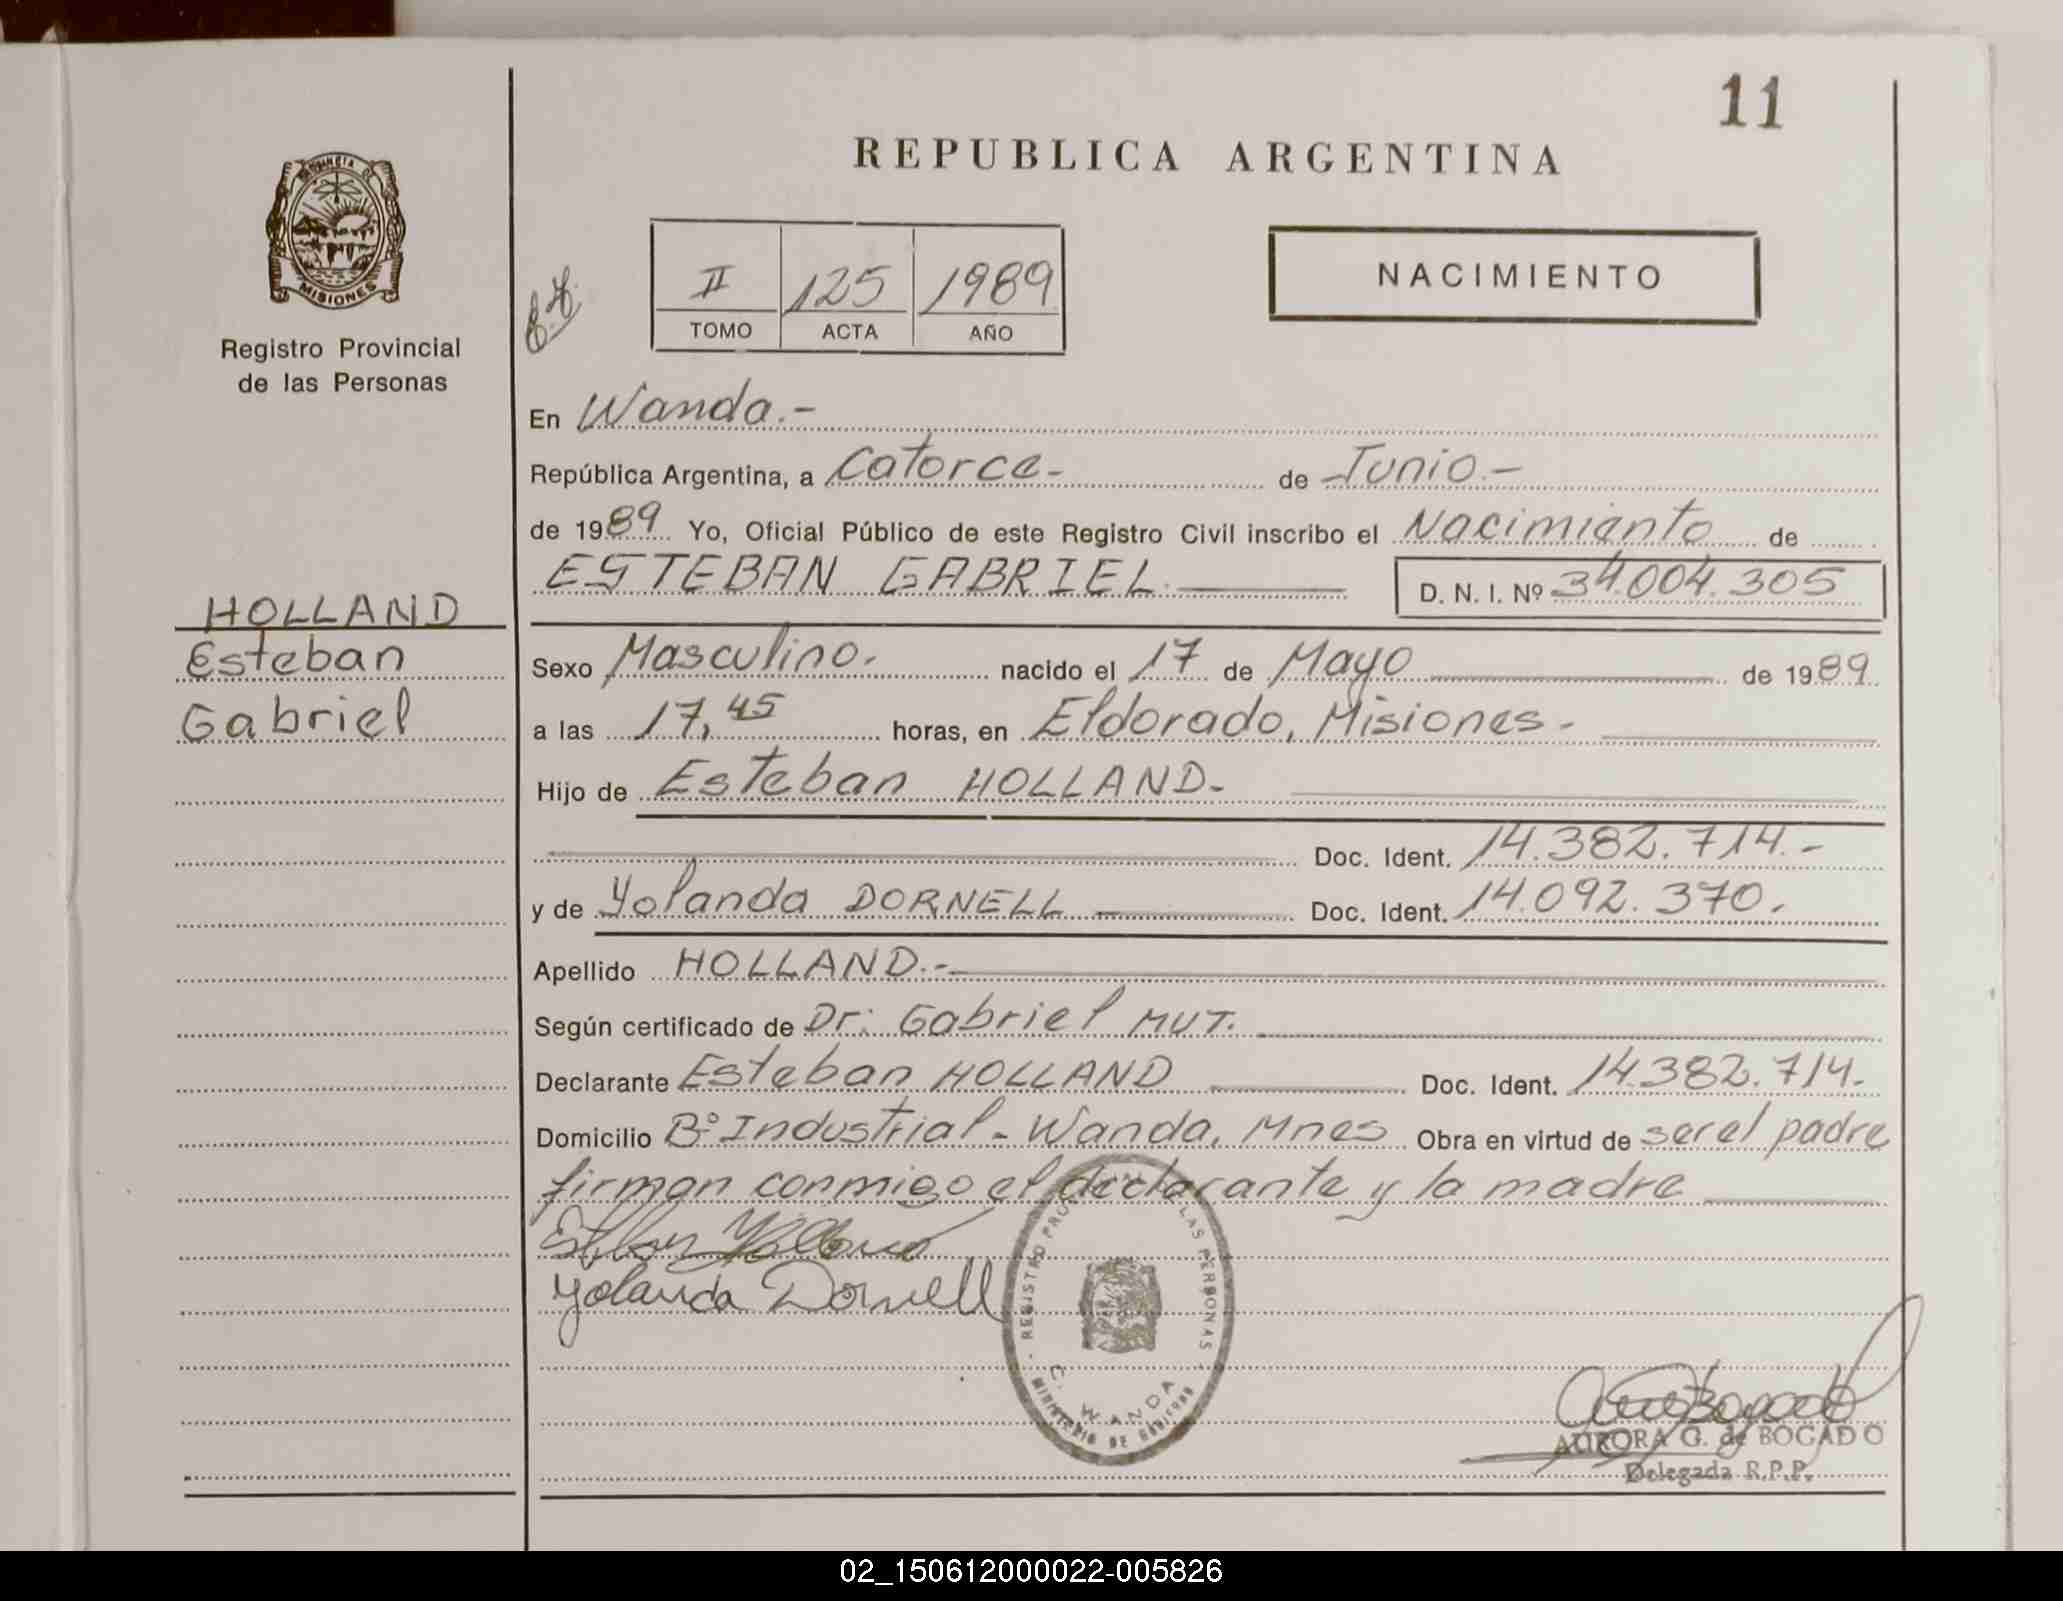 11
REPUBLICA ARGENTINA
PROVINCIA DE
MISIONES
Registro Provincial
de las Personas
II 125 1989
TOMO ACTA AÑO
NACIMIENTO
En Wanda.-
República Argentina, a Catorce- de Junio.-
de 1989 Yo, Oficial Público de este Registro Civil inscribo el Nacimiento de
ESTEBAN GABRIEL. D. N. I. Nº 34.004.305
HOLLAND
Esteban
Gabriel
Sexo Masculino. nacido el 17 de Mayo de 1989
a las 17,45 horas, en Eldorado, Misiones.-
Hijo de Esteban HOLLAND-
Doc. Ident. 14.382.714.-
y de Yolanda DORNELL Doc. Ident. 14.092.370.
Apellido HOLLAND.-
Según certificado de Dr: Gabriel MUT.
Declarante Esteban HOLLAND Doc. Ident. 14.382.714.
Domicilio Bº Industrial - Wanda, Mnes Obra en virtud de ser el padre
firman conmigo el declarante y la madre
Yolanda Dornell
REGISTRO PROVINCIAL DE LAS PERSONAS
C. WANDA
MINISTERIO DE GOBIERNO
AURORA G. de BOGADO
Delegada R.P.P.
02_150612000022-005826